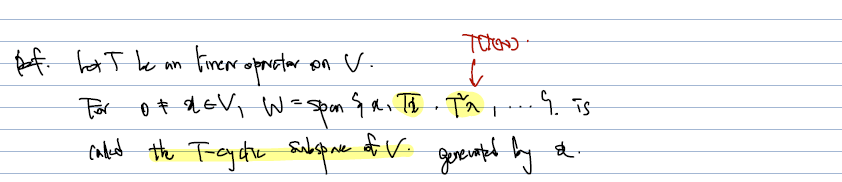 T(T(x)).
Def. Let T be an linear operator on V.
For 0 ≠ x ∈ V, W = span { x, Tx, T²x, ... }. is
called the T-cyclic subspace of V. generated by x.